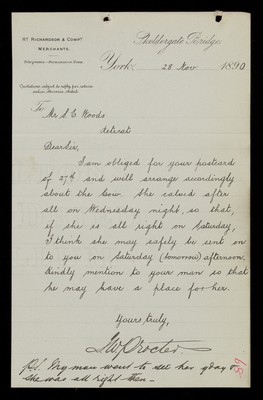 Hy. Richardson & Compy.
Merchants.
Skeldergate Bridge,
York, 28 Nov 1890
To
Mr S. E. Woods
Retreat
Dear Sir,
I am obliged for your postcard
of 27th and will arrange accordingly
about the Cow. She calved after
all on Wednesday night, so that,
if she is all right on Saturday,
I think she may safely be sent on
to you on Saturday (tomorrow) afternoon.
Kindly mention to your man so that
he may have a place for her.
Yours truly,
J W Procter
P.S. My man went to see her yday &
she was all right then—